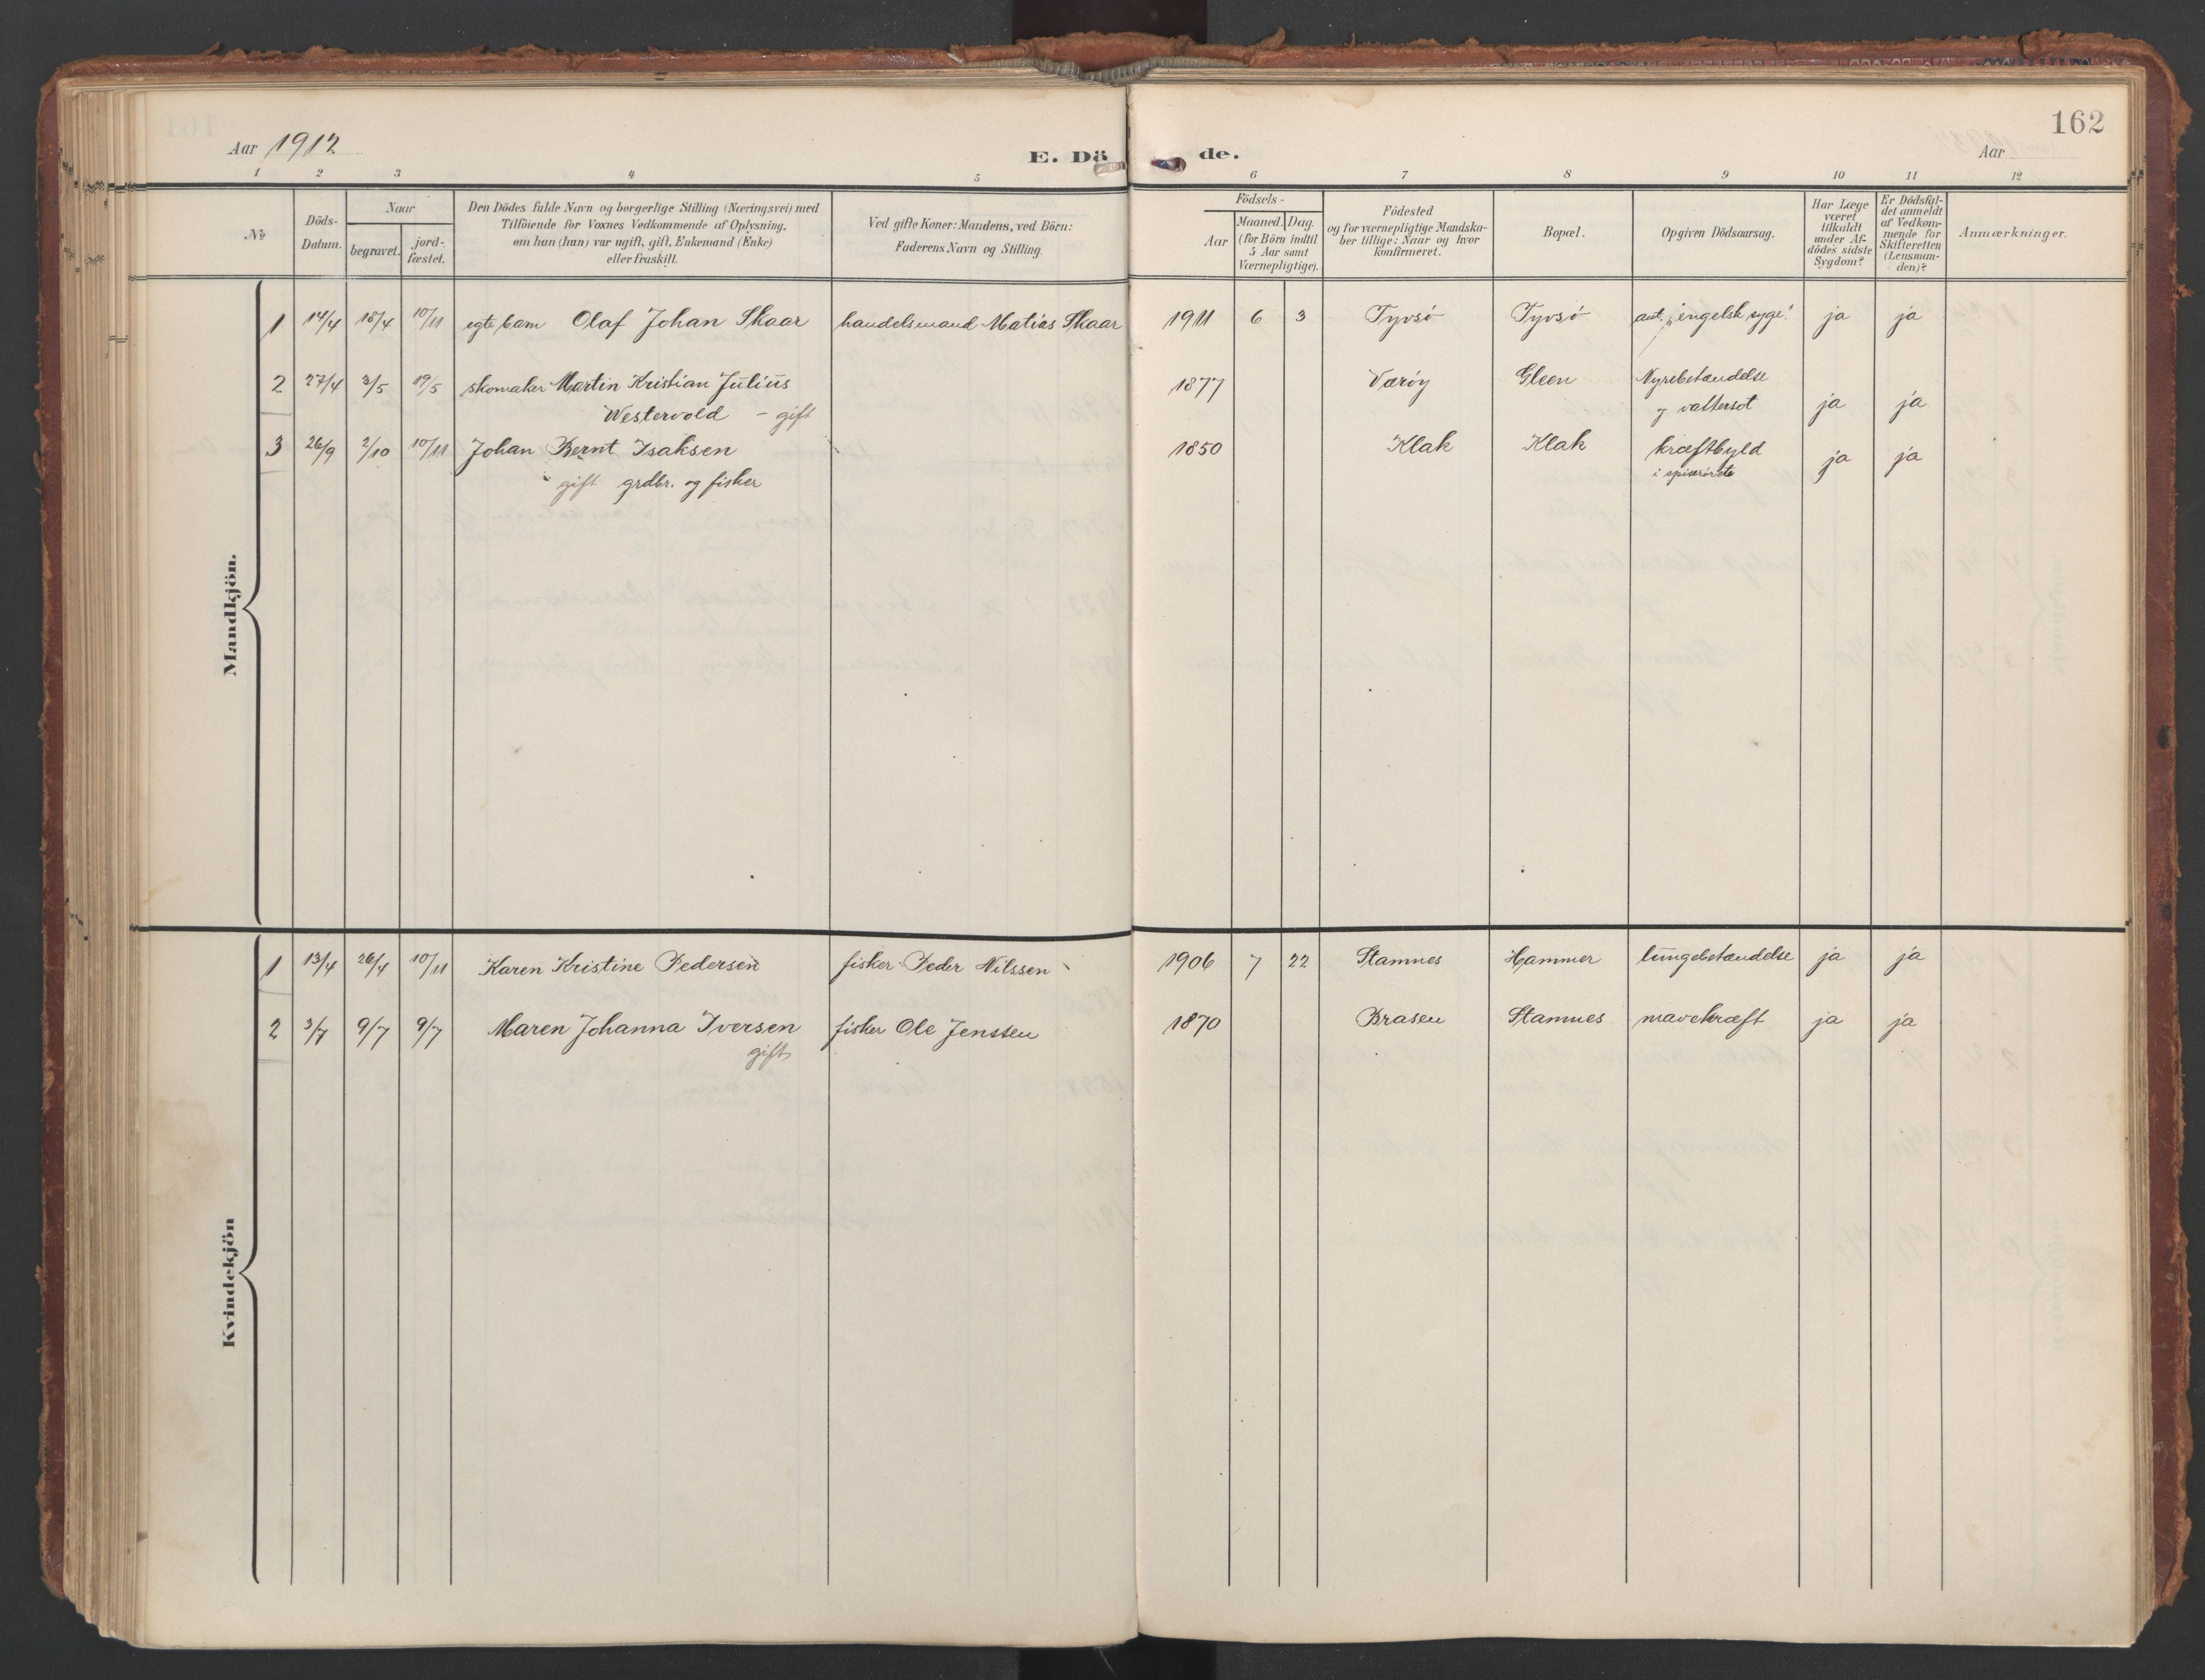 162
Aar 1912
E. Dö de.
Aar
1 2 3 4 5 6 7 8 9 10 11 12
№
Döds-
Datum.
Naar
begravet.
jord-
fæstet.
Den Dödes fulde Navn og borgerlige Stilling (Næringsvei) med
Tilföiende for Voxnes Vedkommende af Oplysning,
om han (hun) var ugift, gift, Enkemand (Enke)
eller fraskilt.
Ved gifte Koner: Mandens, ved Börn:
Faderens Navn og Stilling.
Födsels-
Aar
Maaned. Dag.
(for Börn indtil
5 Aar samt
Værnepligtige).
Födested
og for værnepligtige Mandska-
ber tillige: Naar og hvor
konfirmeret.
Bopæl.
Opgiven Dödsaarsag.
Har Læge
været
tilkaldt
under Af-
dödes sidste
Sygdom?
Er Dödsfal-
det anmeldt
af Vedkom-
mende for
Skifteretten
(Lensman-
den)?
Anmærkninger.
Mandkjön.
1 14/4 18/4 10/11 egte barn Olaf Johan Skaar handelsmand Matias Skaar 1911 6 3 Tyvsö Tyvsö ant. "engelsk syge". ja ja
2 27/4 3/5 19/5 skomaker Martin Kristian Julius 1877 Værøy Gleen Nyrebetændelse
Westervold - gift og vattersot ja ja
3 26/9 2/10 10/11 Johan Bernt Isaksen 1850 Klak Klak kræftbyld ja ja
gift grdbr. og fisker i spiserøret
Kvindekjön
1 13/4 26/4 10/11 Karen Kristine Pedersen fisker Peder Nilssen 1906 7 22 Stamnes Hammer lungebetændelse ja ja
2 3/7 9/7 9/7 Maren Johanna Iversen fisker Ole Jenssen 1870 Brasen Stamnes mavekræft ja ja
gift